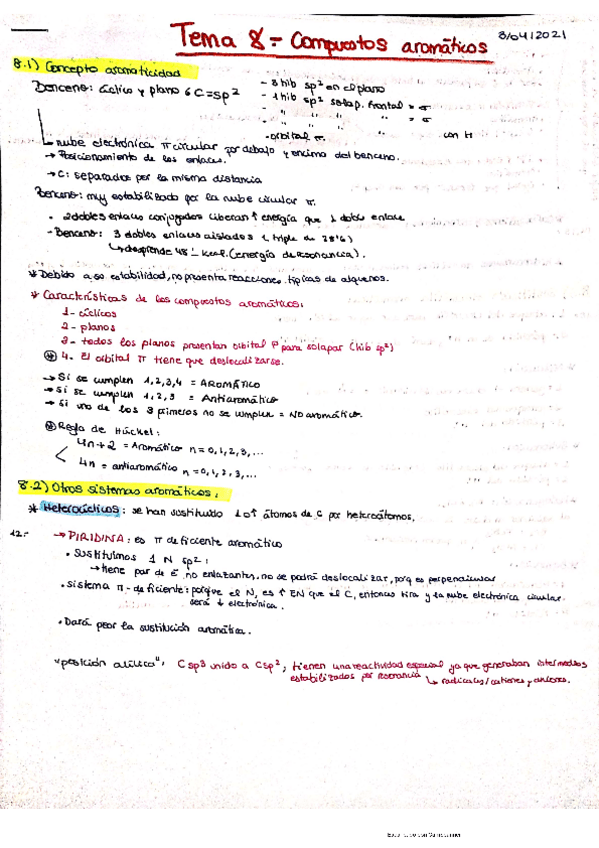 Tema 8.- Compuestos aromáticos
8/04/2021
8.1) Concepto aromaticidad
Benceno: cíclico y plano 6 C=sp²
- 3 hib sp² en el plano
- 1 hib sp² solap. frontal = σ
- " " " " = σ
- " " " con H
- orbital π.
↳ nube electrónica π circular por debajo y encima del benceno.
→ Posicionamiento de los enlaces.
→ C: separados por la misma distancia
Benceno: muy estabilizado por la nube circular π.
• 2 dobles enlaces conjugados liberan ↑ energía que 1 doble enlace
- Benceno: 3 dobles enlaces aislados (triple de 28'6)
↳ desprende 48 kcal. (energía de resonancia).
* Debido a su estabilidad, no presenta reacciones típicas de alquenos.
* Características de los compuestos aromáticos:
1- cíclicos
2- planos
3- todos los planos presentan orbital P para solapar (hib sp²)
* 4. El orbital π tiene que deslocalizarse.
→ Si se cumplen 1,2,3,4 = AROMÁTICO
→ Si se cumplen 1,2,3 = Antiaromático
→ Si uno de los 3 primeros no se cumplen = NO aromático.
* Regla de Hückel:
4n+2 = Aromático n=0,1,2,3,...
4n = antiaromático n=0,1,2,3,...
8.2) Otros sistemas aromáticos.
* Heterocíclicos: se han sustituido 1 o ↑ átomos de C por heteroátomos.
12.- → PIRIDINA: es π deficiente aromático
• Sustituimos 1 N sp²:
→ tiene par de e⁻ no enlazantes, no se podrá deslocalizar, porq es perpendicular
• Sistema π-deficiente: porque el N, es ↑ EN que el C, entonces tira y la nube electrónica circular
será ↓ electrónica.
• Dará peor la sustitución aromática.
"posición alílica": Csp3 unido a Csp², tienen una reactividad especial ya que generaban intermedios
estabilizados por resonancia ↳ radicales/cationes y aniones.